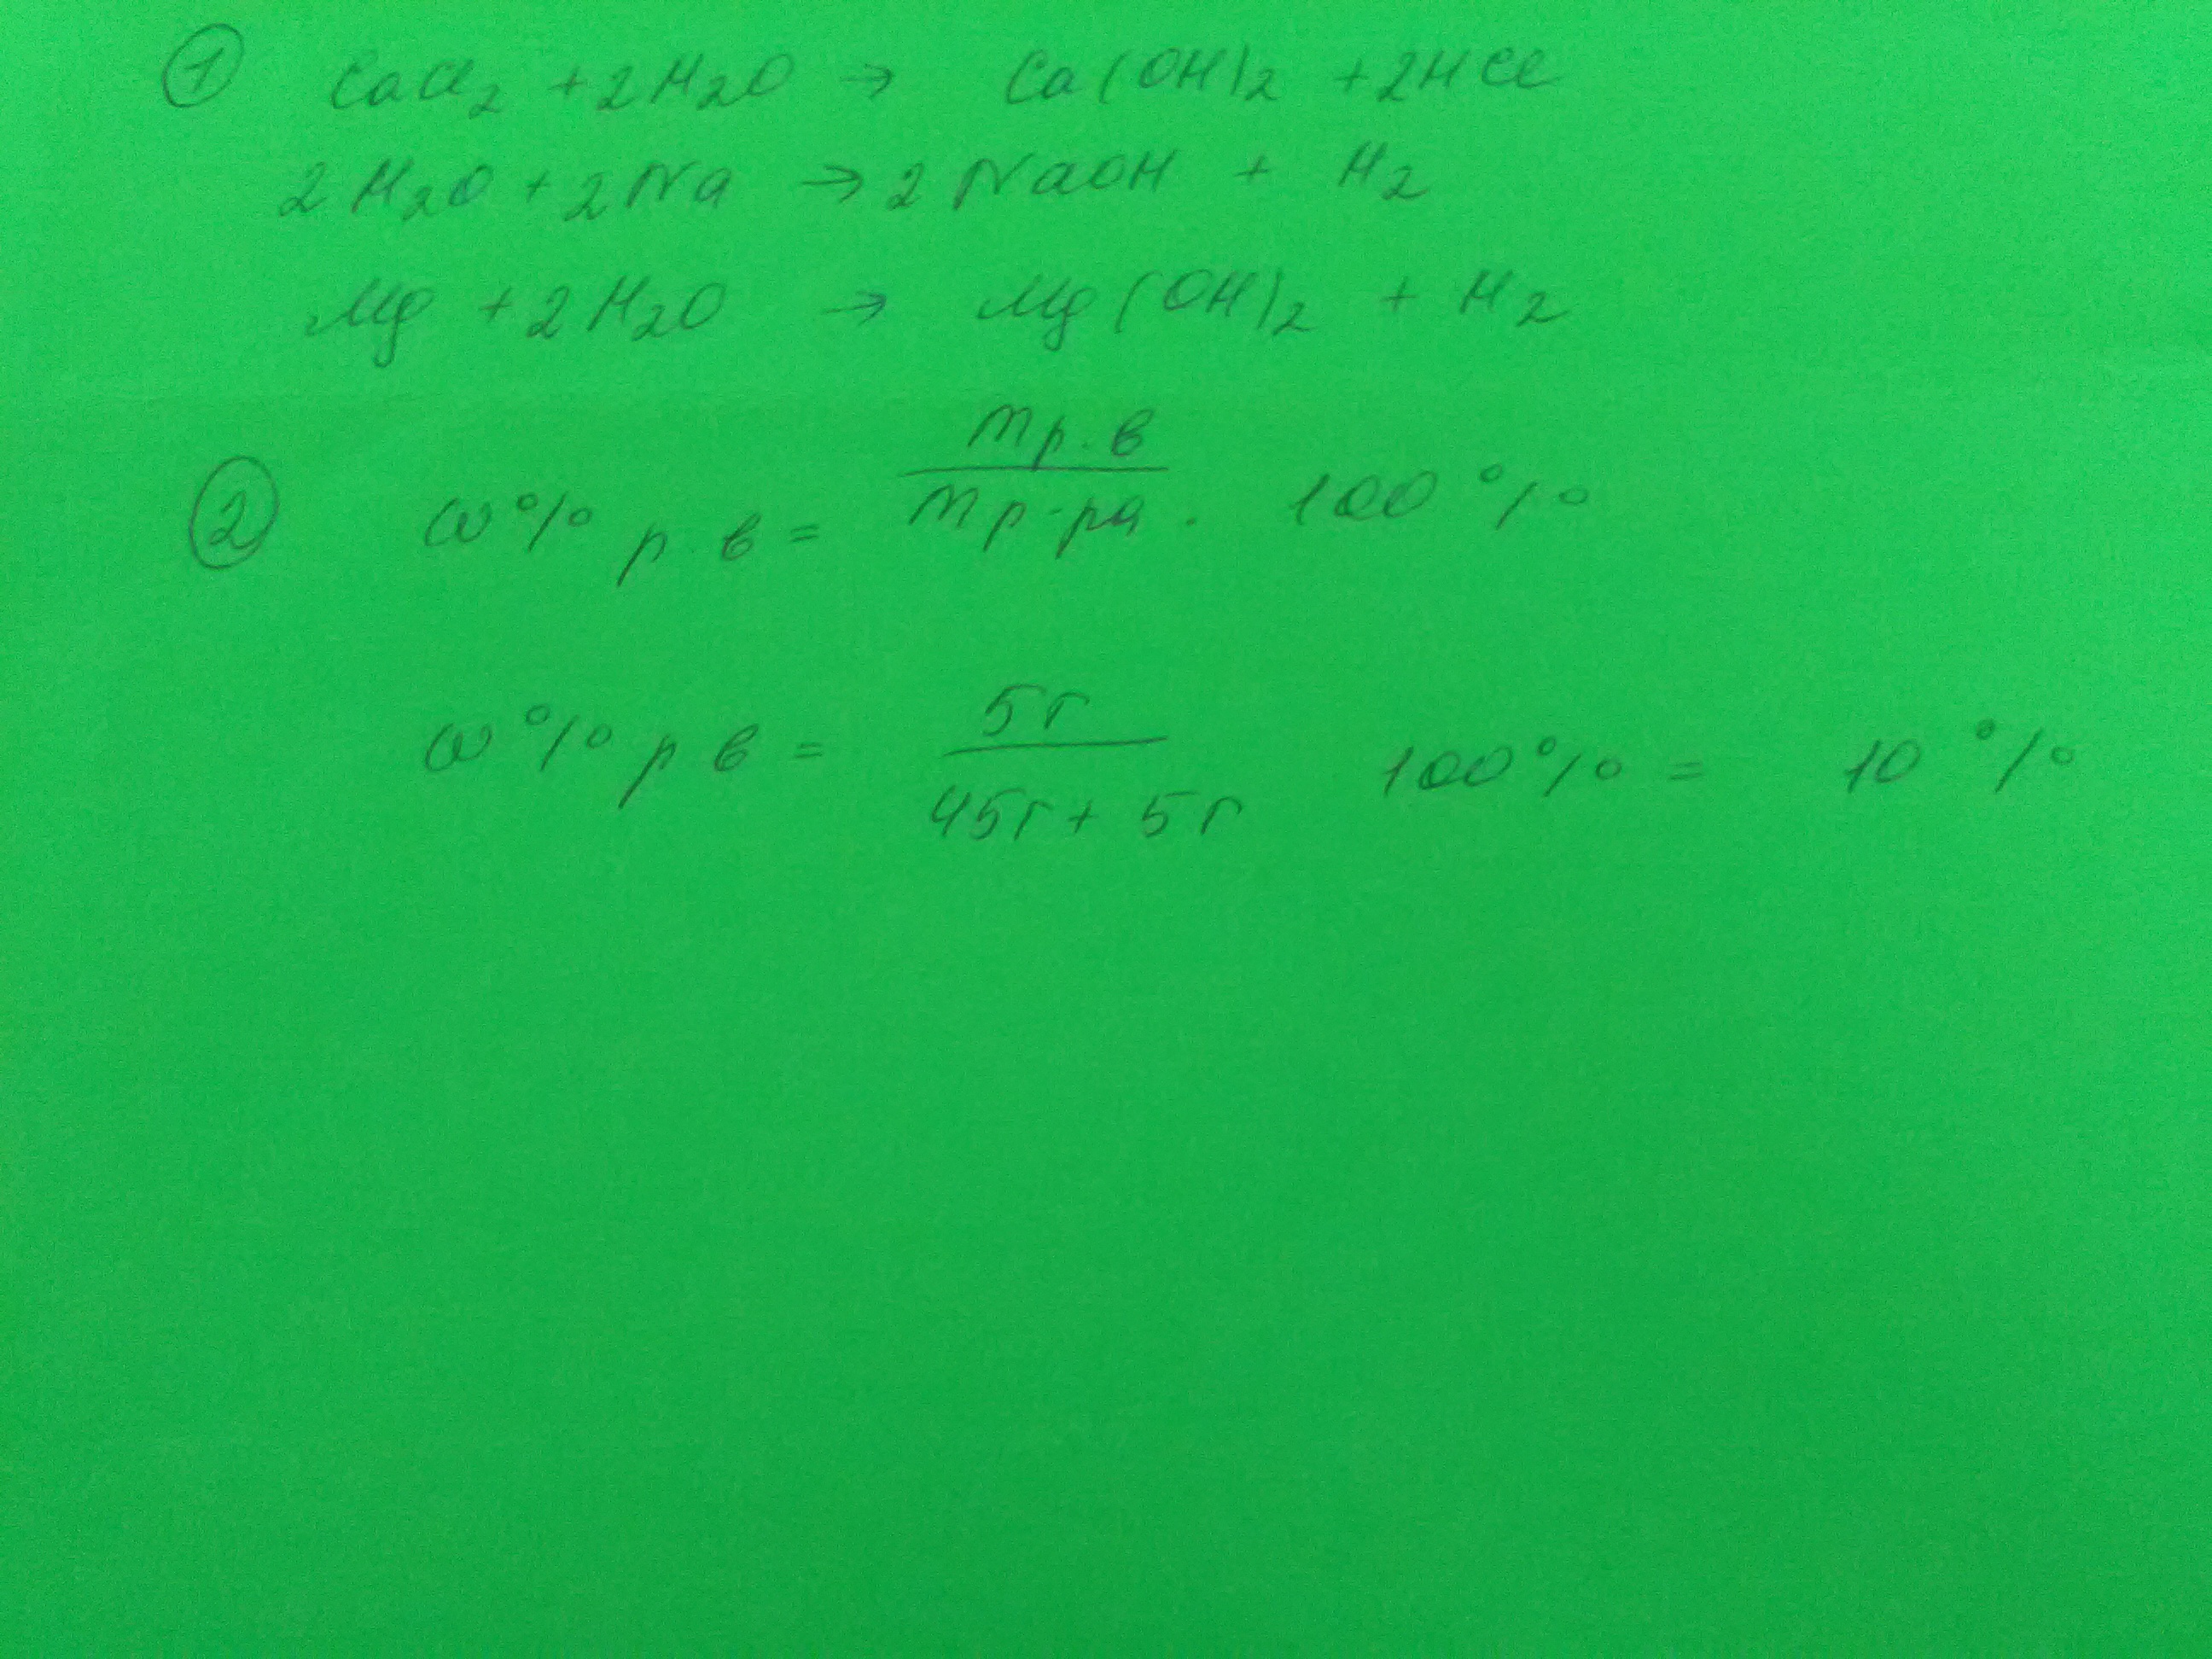 ① CaCl₂ + 2H₂O → Ca(OH)₂ + 2HCl
2H₂O + 2Na → 2NaOH + H₂
Mg + 2H₂O → Mg(OH)₂ + H₂
② ω% р.в = mр.в / mр-ра · 100%
ω% р в = 5г / 45г + 5г 100% = 10%